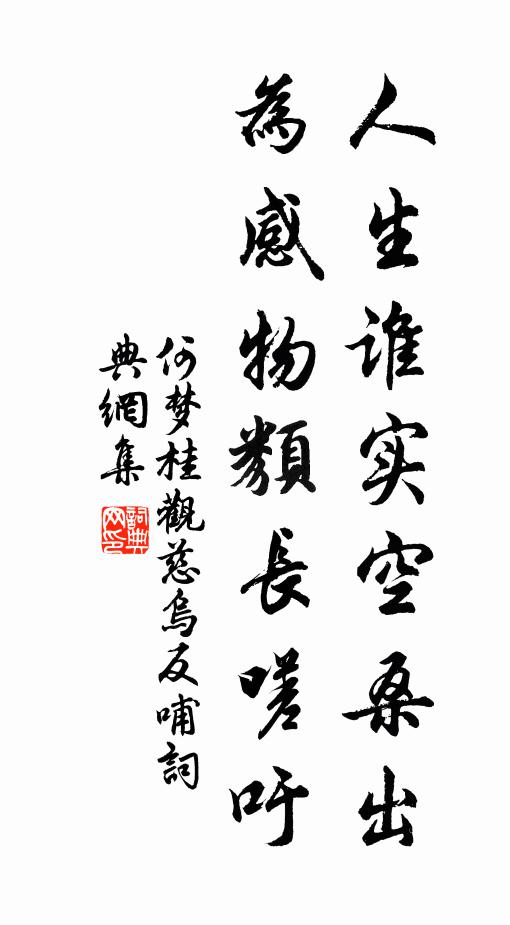 人生谁实空桑出
為感物類長嗟吁
何梦桂觀慈烏反哺詞
典網集
詞典网印